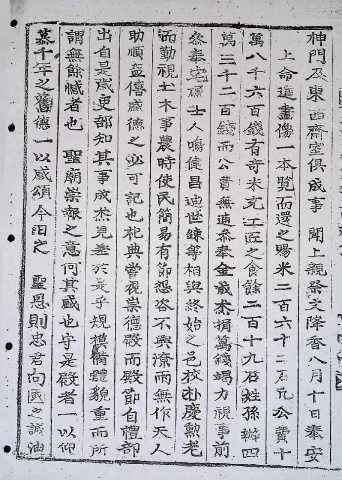 神門及東西齋室俱成事 聞上親祭文降香八月十日奉安
上命進畫像一本覽而還之賜米二百六十二石元公費十
萬八千六百錢有奇米充工匠之食餘二百十九石姓孫辦四
萬三千二百錢而公費無遺參奉金成 捐萬錢竭力視事前
參奉 碩士人鳴 昌迪世鍊等相與終始之邑校朴慶勲老
而勤視土木事農時使民簡易有節怨咨不興潦雨無作天人
助順 僖盛德之必可記也祀典當視崇德殿而殿節自禮部
出自是歲吏部知其事成杰見差於是乎規模脩體貌重而所
謂無餘憾者也 聖廟崇報之意何其盛也守是殿者一以仰
慕千年之舊德一以感頌今日之 聖恩則忠君向國之誠油